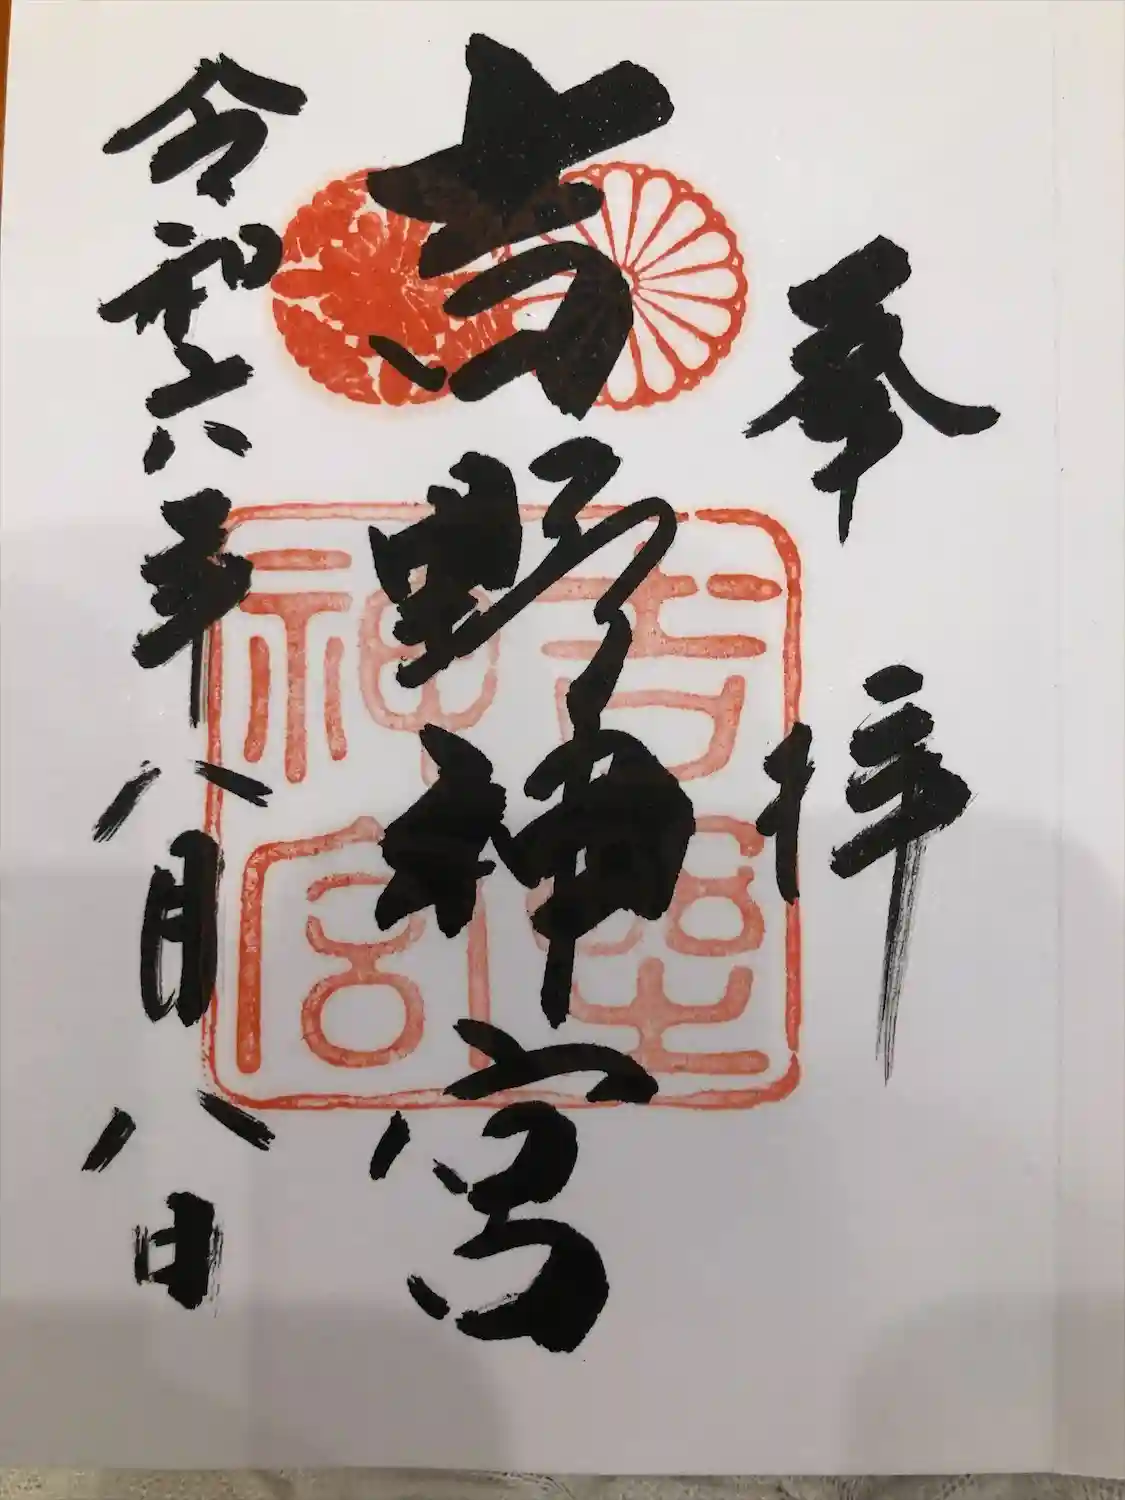 奉拝
吉野神宮
令和六年八月八日
吉野神宮